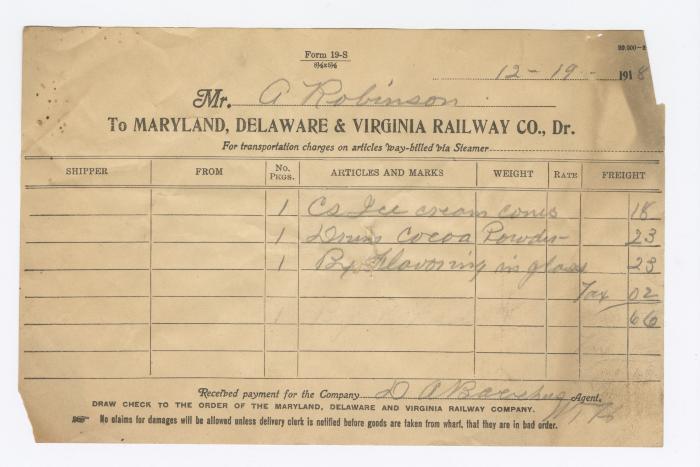 Form 19-S
8½x5½
12-19- 1918
Mr. A Robinson
To MARYLAND, DELAWARE & VIRGINIA RAILWAY CO., Dr.
For transportation charges on articles way-billed via Steamer
SHIPPER FROM No. PKGS. ARTICLES AND MARKS WEIGHT RATE FREIGHT
1 Cs Ice cream cones 18
1 Drum Cocoa Powder 23
1 Bx Flavoring in glass 23
Tax 02
66
Received payment for the Company D A Agent.
DRAW CHECK TO THE ORDER OF THE MARYLAND, DELAWARE AND VIRGINIA RAILWAY COMPANY.
No claims for damages will be allowed unless delivery clerk is notified before goods are taken from wharf, that they are in bad order.